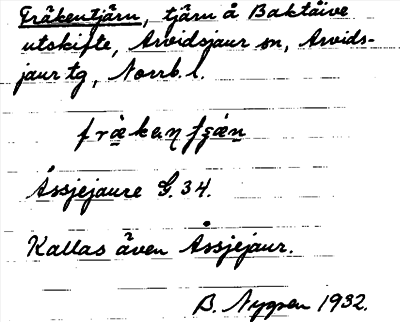 Fräkentjärn, tjärn å Baktåive
utskifte, Arvidsjaur sn, Arvids-
jaur tg, Norrb. l.
fräkaƞ ʃǥän
Åssjejaure G. 34.
Kallas även Åssjejaur.
B. Nygren 1932.